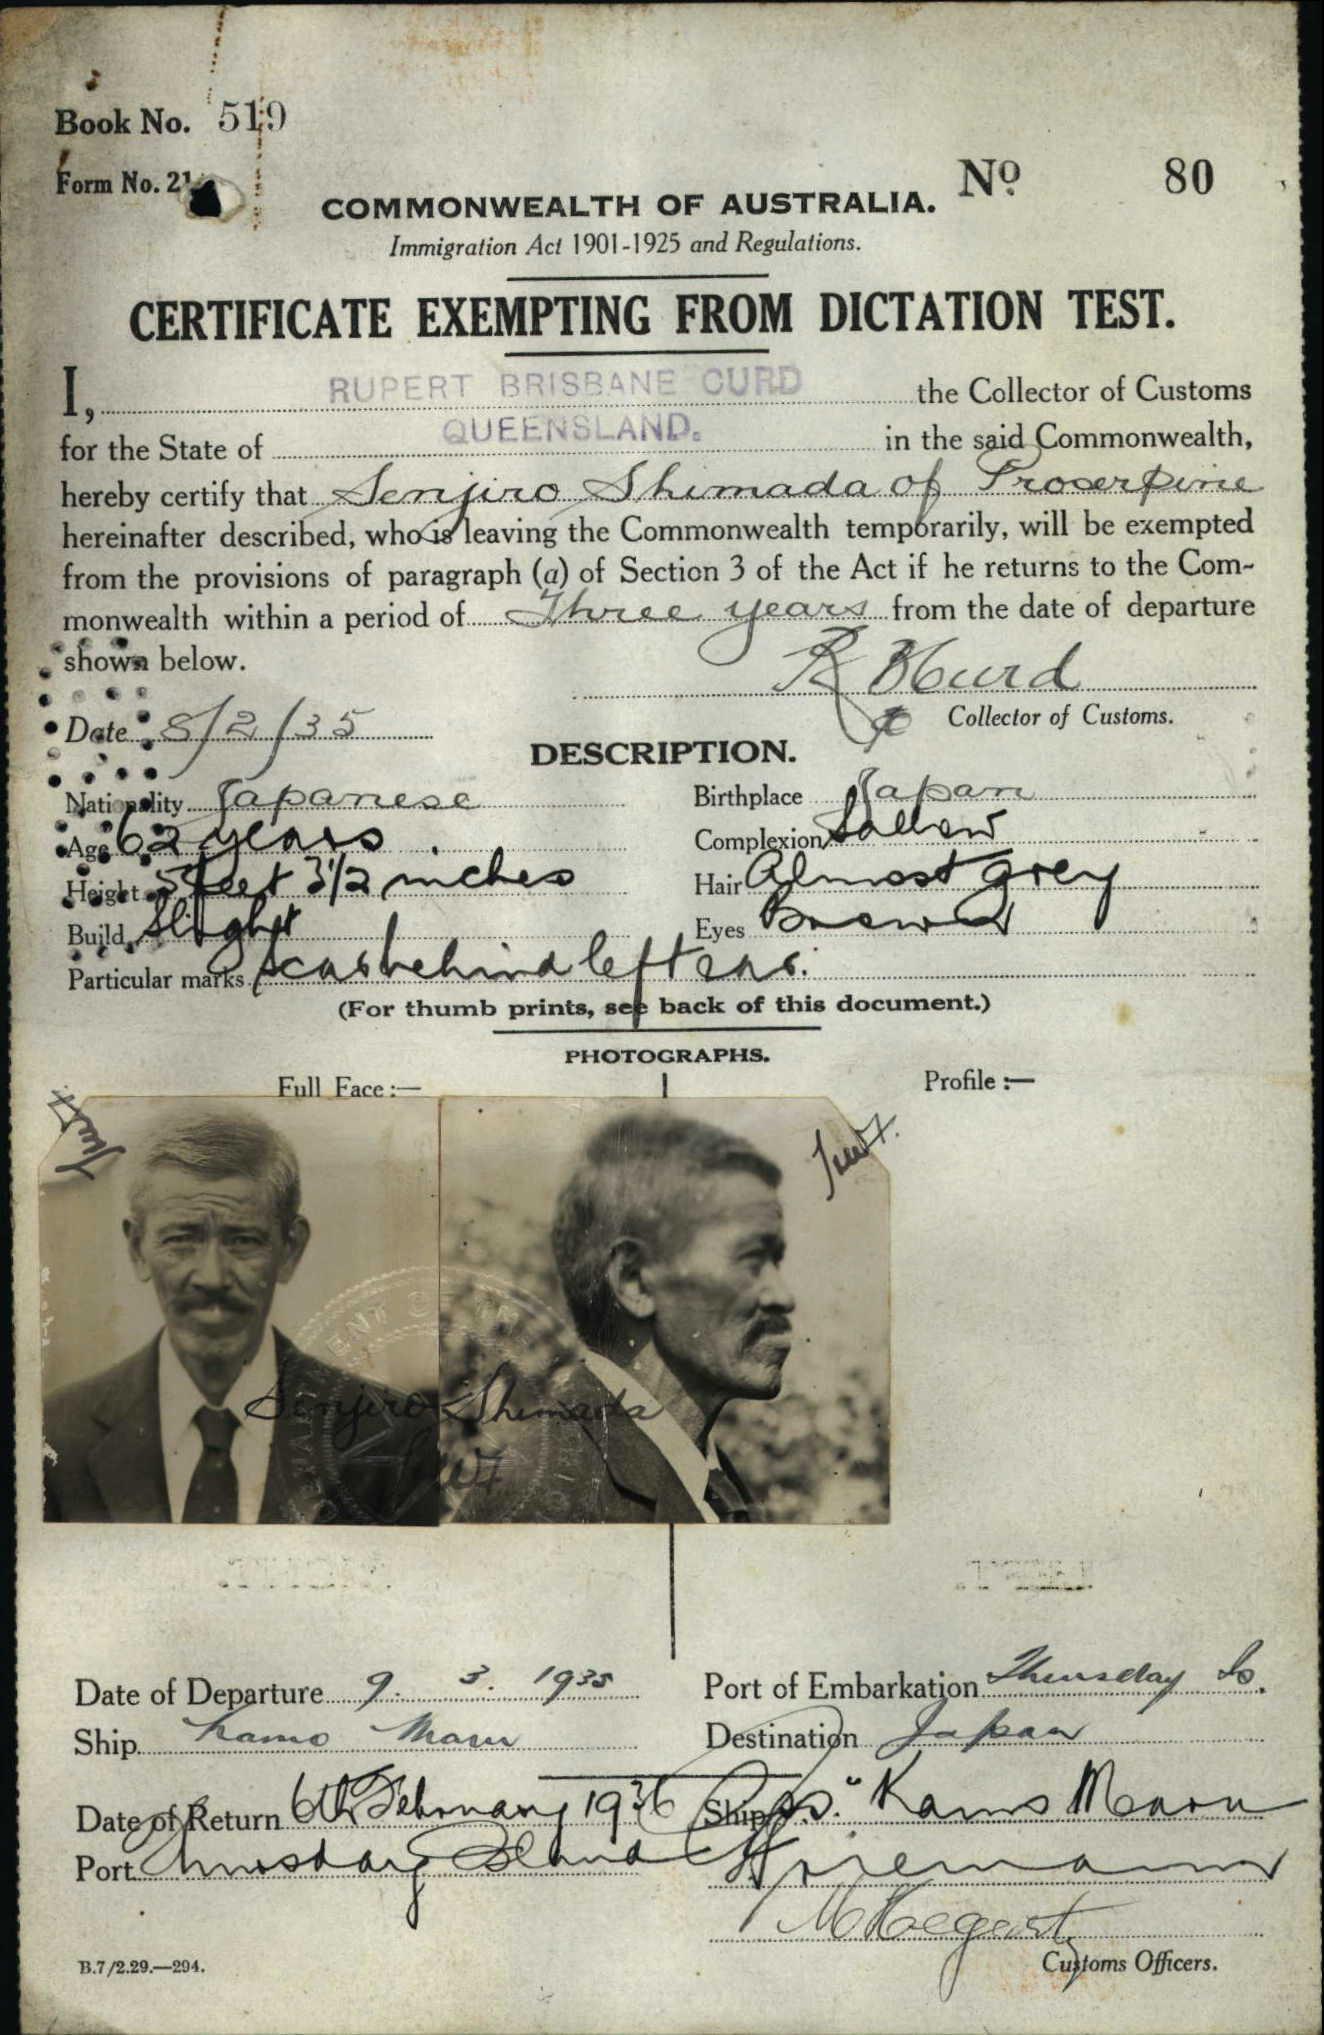 Book No. 519
Form No. 21
No. 80
COMMONWEALTH OF AUSTRALIA.
Immigration Act 1901-1925 and Regulations.
CERTIFICATE EXEMPTING FROM DICTATION TEST.
I, RUPERT BRISBANE CURD the Collector of Customs
for the State of QUEENSLAND. in the said Commonwealth,
hereby certify that Senjiro Shimada of Proserpine
hereinafter described, who is leaving the Commonwealth temporarily, will be exempted
from the provisions of paragraph (a) of Section 3 of the Act if he returns to the Com-
monwealth within a period of Three years from the date of departure
shown below.
R B Curd
Date 8/2/35
Collector of Customs.
DESCRIPTION.
Nationality Japanese Birthplace Japan
Age 62 years Complexion Sallow
Height 5 feet 3 1/2 inches Hair Almost grey
Build Slight Eyes Brown
Particular marks Scar behind left ear.
(For thumb prints, see back of this document.)
PHOTOGRAPHS.
Full Face :— Profile :—
Senjiro Shimada
Date of Departure 9. 3. 1935 Port of Embarkation Thursday Is.
Ship Kamo Maru Destination Japan
Date of Return 6th February 1936 Ship s.s. "Kamo Maru
Port Thursday Island
Customs Officers.
B.7/2.29.—294.